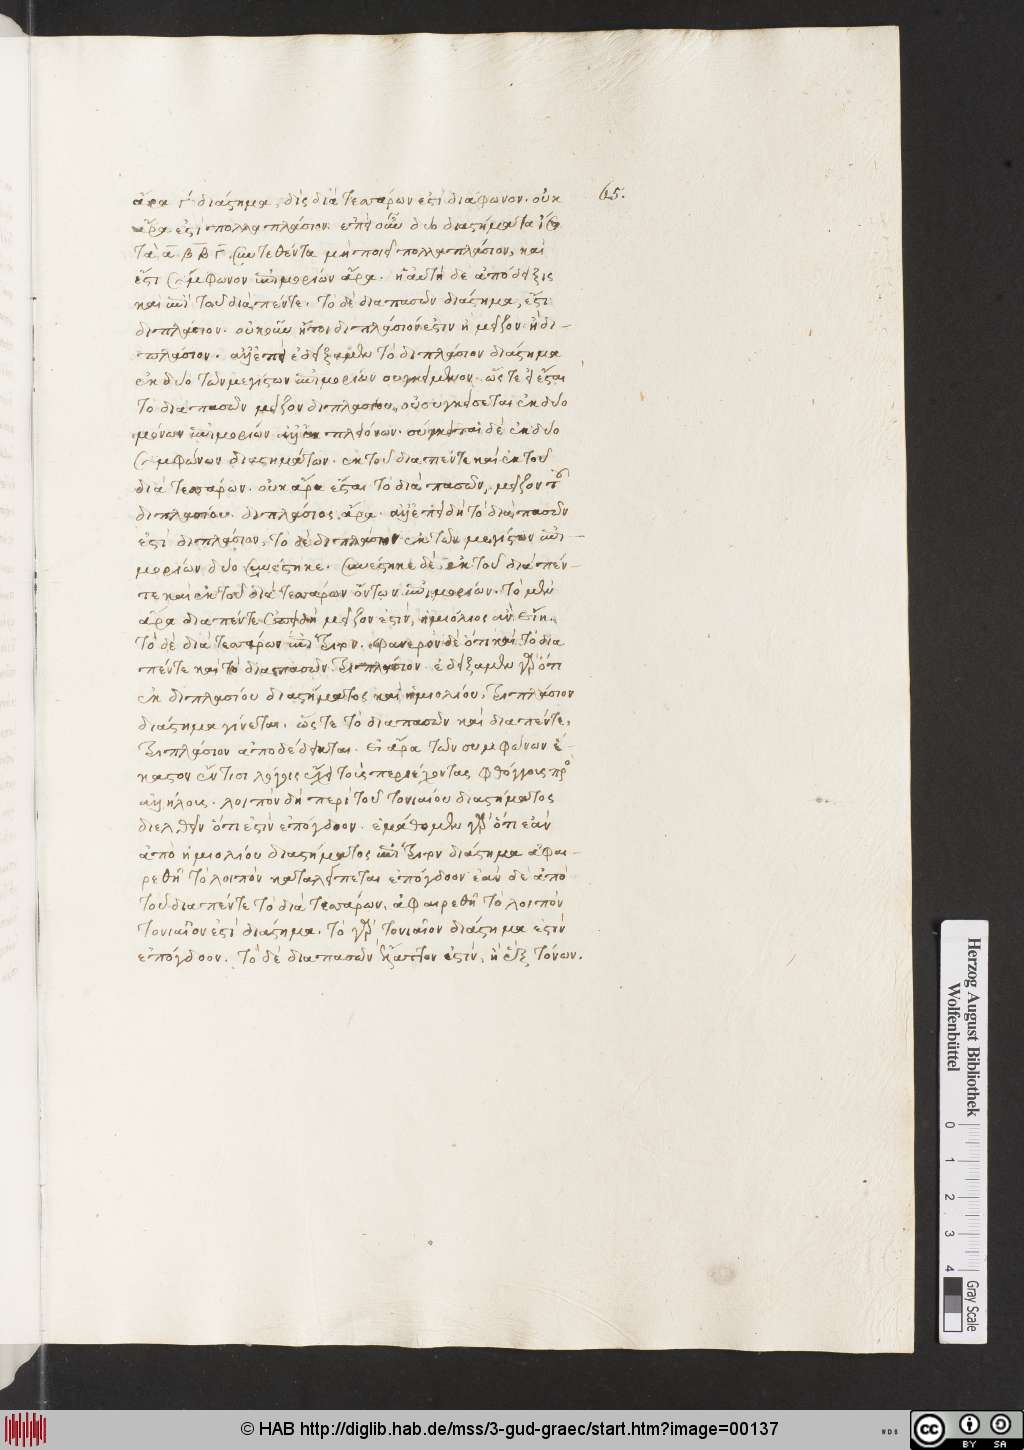 65.
ἄρα γ διάστημα, δὶς διὰ τεσσάρων ἐστὶ διάφωνον. οὐκ
ἄρα ἐστὶ πολλαπλάσιον. ἐπεὶ οὖν δύο διαστήματα ἴσα
τὰ α β β γ συντεθέντα μὴ ποιεῖ πολλαπλάσιον, καὶ
ἔστι σύμφωνον ἐπιμορίων ἄρα. ἡ αὐτὴ δὲ ἀπόδειξις
καὶ ἐπὶ τοῦ διαπέντε. τὸ δὲ διαπασῶν διάστημα, ἔστι
διπλάσιον. οὐκοῦν ἤτοι διπλάσιόν ἐστιν ἢ μεῖζον ἢ δι-
πλάσιον. ἀλλ' ἐπεὶ ἐδείξαμεν τὸ διπλάσιον διάστημα
ἐκ δύο τῶν μεγίστων ἐπιμορίων συγκείμενον. ὥστε εἰ ἔσται
τὸ διαπασῶν μεῖζον διπλασίου, οὐ συγκείσεται ἐκ δύο
μόνων ἐπιμορίων ἀλλ' ἐκ πλειόνων. σύγκειται δὲ ἐκ δύο
συμφώνων διαστημάτων. ἐκ τοῦ διαπέντε καὶ ἐκ τοῦ
διὰ τεσσάρων. οὐκ ἄρα ἔσται τὸ διὰ πασῶν, μεῖζον τοῦ
διπλασίου. διπλάσιος ἄρα. ἀλλ' ἐπειδὴ τὸ διὰ πασῶν
ἐστὶ διπλάσιον, τὸ δὲ διπλάσιον ἐκ τῶν μεγίστων ἐπι-
μορίων δύο συνέστηκε. συνέστηκε δὲ ἐκ τοῦ διὰ πέν-
τε καὶ ἐκ τοῦ διὰ τεσσάρων ὄντων ἐπιμορίων. τὸ μὲν
ἄρα διαπέντε ἐπειδὴ μεῖζον ἐστὶν, ἡμιόλιος ἂν εἴη.
τὸ δὲ διὰ τεσσάρων ἐπίτριτον. φανερὸν δὲ ὅτι καὶ τὸ δια
πέντε καὶ τὸ διαπασῶν τριπλάσιον. ἐδείξαμεν γὰρ ὅτι
ἐκ διπλασίου διαστήματος καὶ ἡμιολίου, τριπλάσιον
διάστημα γίνεται. ὥστε τὸ διαπασῶν καὶ διαπέντε,
τριπλάσιον ἀποδέδεικται. εἰ ἄρα τῶν συμφώνων ἕ-
καστον ἔν τισι λόγοις ἔχει τοὺς περιέχοντας φθόγγους πρὸς
ἀλλήλους. λοιπὸν δὴ περὶ τοῦ τονιαίου διαστήματος
διελθεῖν ὅτι ἐστὶν ἐπόγδοον. ἐμάθομεν γὰρ ὅτι ἐὰν
ἀπὸ ἡμιολίου διαστήματος ἐπίτριτον διάστημα ἀφαι-
ρεθῇ τὸ λοιπὸν καταλείπεται ἐπόγδοον ἐὰν δὲ ἀπὸ
τοῦ διαπέντε τὸ διὰ τεσσάρων, ἀφαιρεθῇ τὸ λοιπὸν
τονιαῖον ἐστὶ διάστημα. τὸ γὰρ τονιαῖον διάστημα ἐστὶν
ἐπόγδοον. τὸ δὲ διαπασῶν ἔλαττον ἐστὶν, ἢ ἓξ τόνων.
Herzog August Bibliothek
Wolfenbüttel
0 1 2 3 4
Gray Scale
© HAB http://diglib.hab.de/mss/3-gud-graec/start.htm?image=00137
WDB
cc BY SA